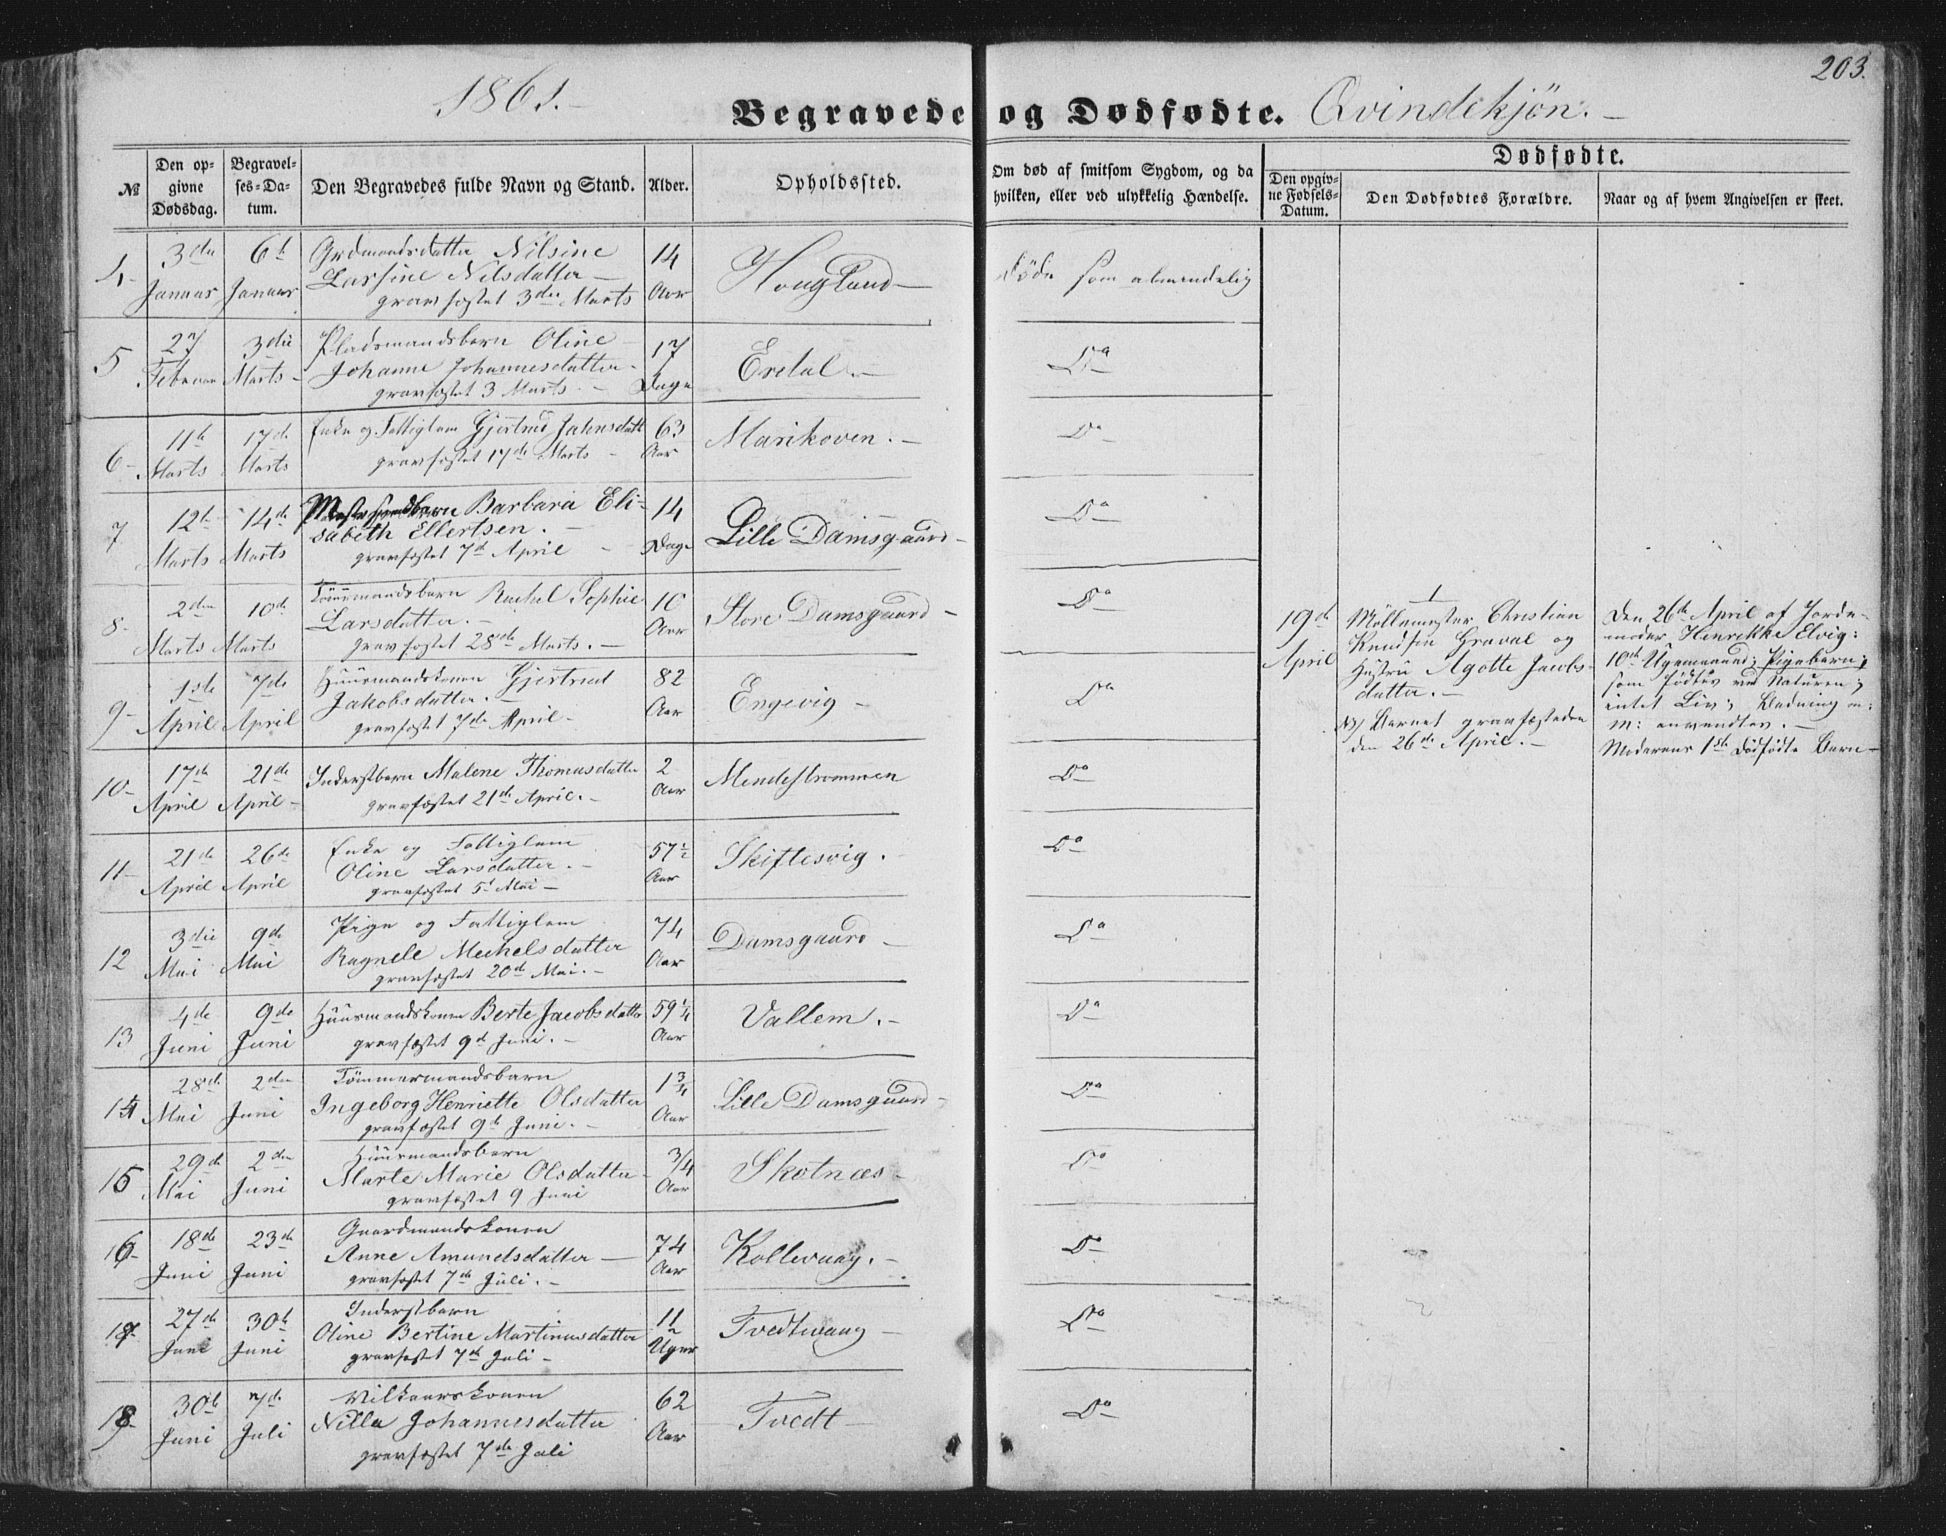 1861.-
203.
Begravede og Dødfødte. Qvindekjøn.-
№
Den op-
givne
Dødsdag.
Begravel-
ses-Da-
tum.
Den Begravedes fulde Navn og Stand.
Alder.
Opholdssted.
Om død af smitsom Sygdom, og da
hvilken, eller ved ulykkelig Hændelse.
Dødfødte.
Den opgiv-
ne Fødsels-
Datum.
Den Dødfødtes Forældre.
Naar og af hvem Angivelsen er skeet.
4. 3die Januar 6te Januar Grdmandsdatter Nilsine
Larsine Nilsdatter
gravfæstet 3die Marts
14 Aar Hougland Døde som almindelig
5 27 Februar 3die Marts Pladsmandsbarn Oline
Johanne Johannesdatter
gravfæstet 3 Marts
17 Dage Eredal Do
6 11te Marts 17de Marts Enke og Fattiglem Gjertrud Jahnsdatt
gravfæstet 17de Marts
63 Aar Marikoven Do
7 12te Marts 14de Marts Barbara Eli-
sabeth Ellertsen.
gravfæstet 7de April
14 Dage Lille Damsgaard Do
8 2den Marts 10de Marts Tömmermandsbarn Rachel Sophie
Larsdatter.
gravfæstet 28de Marts.
10 Aar Store Damsgaard Do
9 1ste April 7de April Huusmandskonen Gjertrud
Jakobsdatter.
gravfæstet 7de April
82 Aar Engevig Do
10 17de April 21de April Inderstbarn Malene Thomasdatter
gravfæstet 21de April.
2 Aar Mendestrømmen Do
11 21de April 26de April Enke og Fattiglem
Oline Larsdatter.
gravfæstet 5te Mai
57½ Aar Skiftesvig. Do
12 3die Mai 9de Mai Pige og Fattiglem
Ragnele Mechelsdatter
gravfæstet 20de Mai.
74 Aar Damsgaard Do
13 4de Juni 9de Juni Huusmandskonen Berte Jacobsdatter
gravfæstet 9de Juni.
59¼ Aar Vallem. Do
14 28de Mai 2den Juni Tömmermandsbarn
Ingeborg Henriette Olsdatter
gravfæstet 9de Juni.
1¾ Aar Lille Damsgaard Do
15 29de Mai 2den Juni Huusmandsbarn
Marte Marie Olsdatter
gravfæstet 9 Juni
¾ Aar Skotnæs Do
16 18de Juni 23de Juni Gaardmandskonen
Anne Amundsdatter
gravfæstet 7de Juli.
74 Aar Kollevaag. Do
17 27de Juni 30te Juni Inderstbarn
Oline Bertine Martinusdatter
gravfæstet 7de Juli
11 Uger Tvedtvaag Do
18 30te Juni 7de Juli Vilkaarskonen
Nille Johannesdatter
gravfæstet 7de Juli
62 Aar Tvedt Do
19de
April
1
Möllemester Christian
Knudsen Graval og
Hustru Agotte Jacobs-
datter.
NB Barnet gravfæstedes
den 26de April.
Den 26de April af Jorde-
moder Henrikke Elvig:
10de Ugemaaned; Pigebarn;
som födtes ved Naturen;
intet Liv; Badning m:
m: anvendtes.
Moderens 1ste Dödfödte Barn